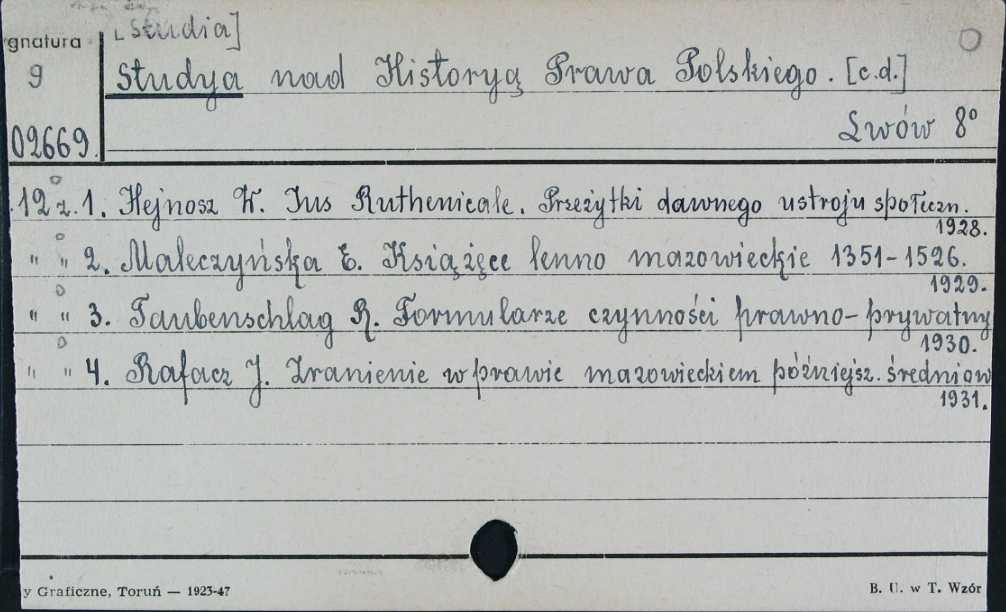 [Studia]
gnatura
9
Studya nad Historyą Prawa Polskiego. [c.d.]
Lwów 8°
02669.
12 z. 1. Hejnosz W. Ius Ruthenicale. Przeżytki dawnego ustroju społeczn.
1928.
" " 2. Maleczyńska E. Książęce lenno mazowieckie 1351-1526.
1929.
" " 3. Taubenschlag R. Formularze czynności prawno-prywatny
1930.
" " 4. Rafacz J. Zranienie w prawie mazowieckiem późniejsz. średniow
1931.
y Graficzne, Toruń — 1923-47
B. U. w T. Wzór